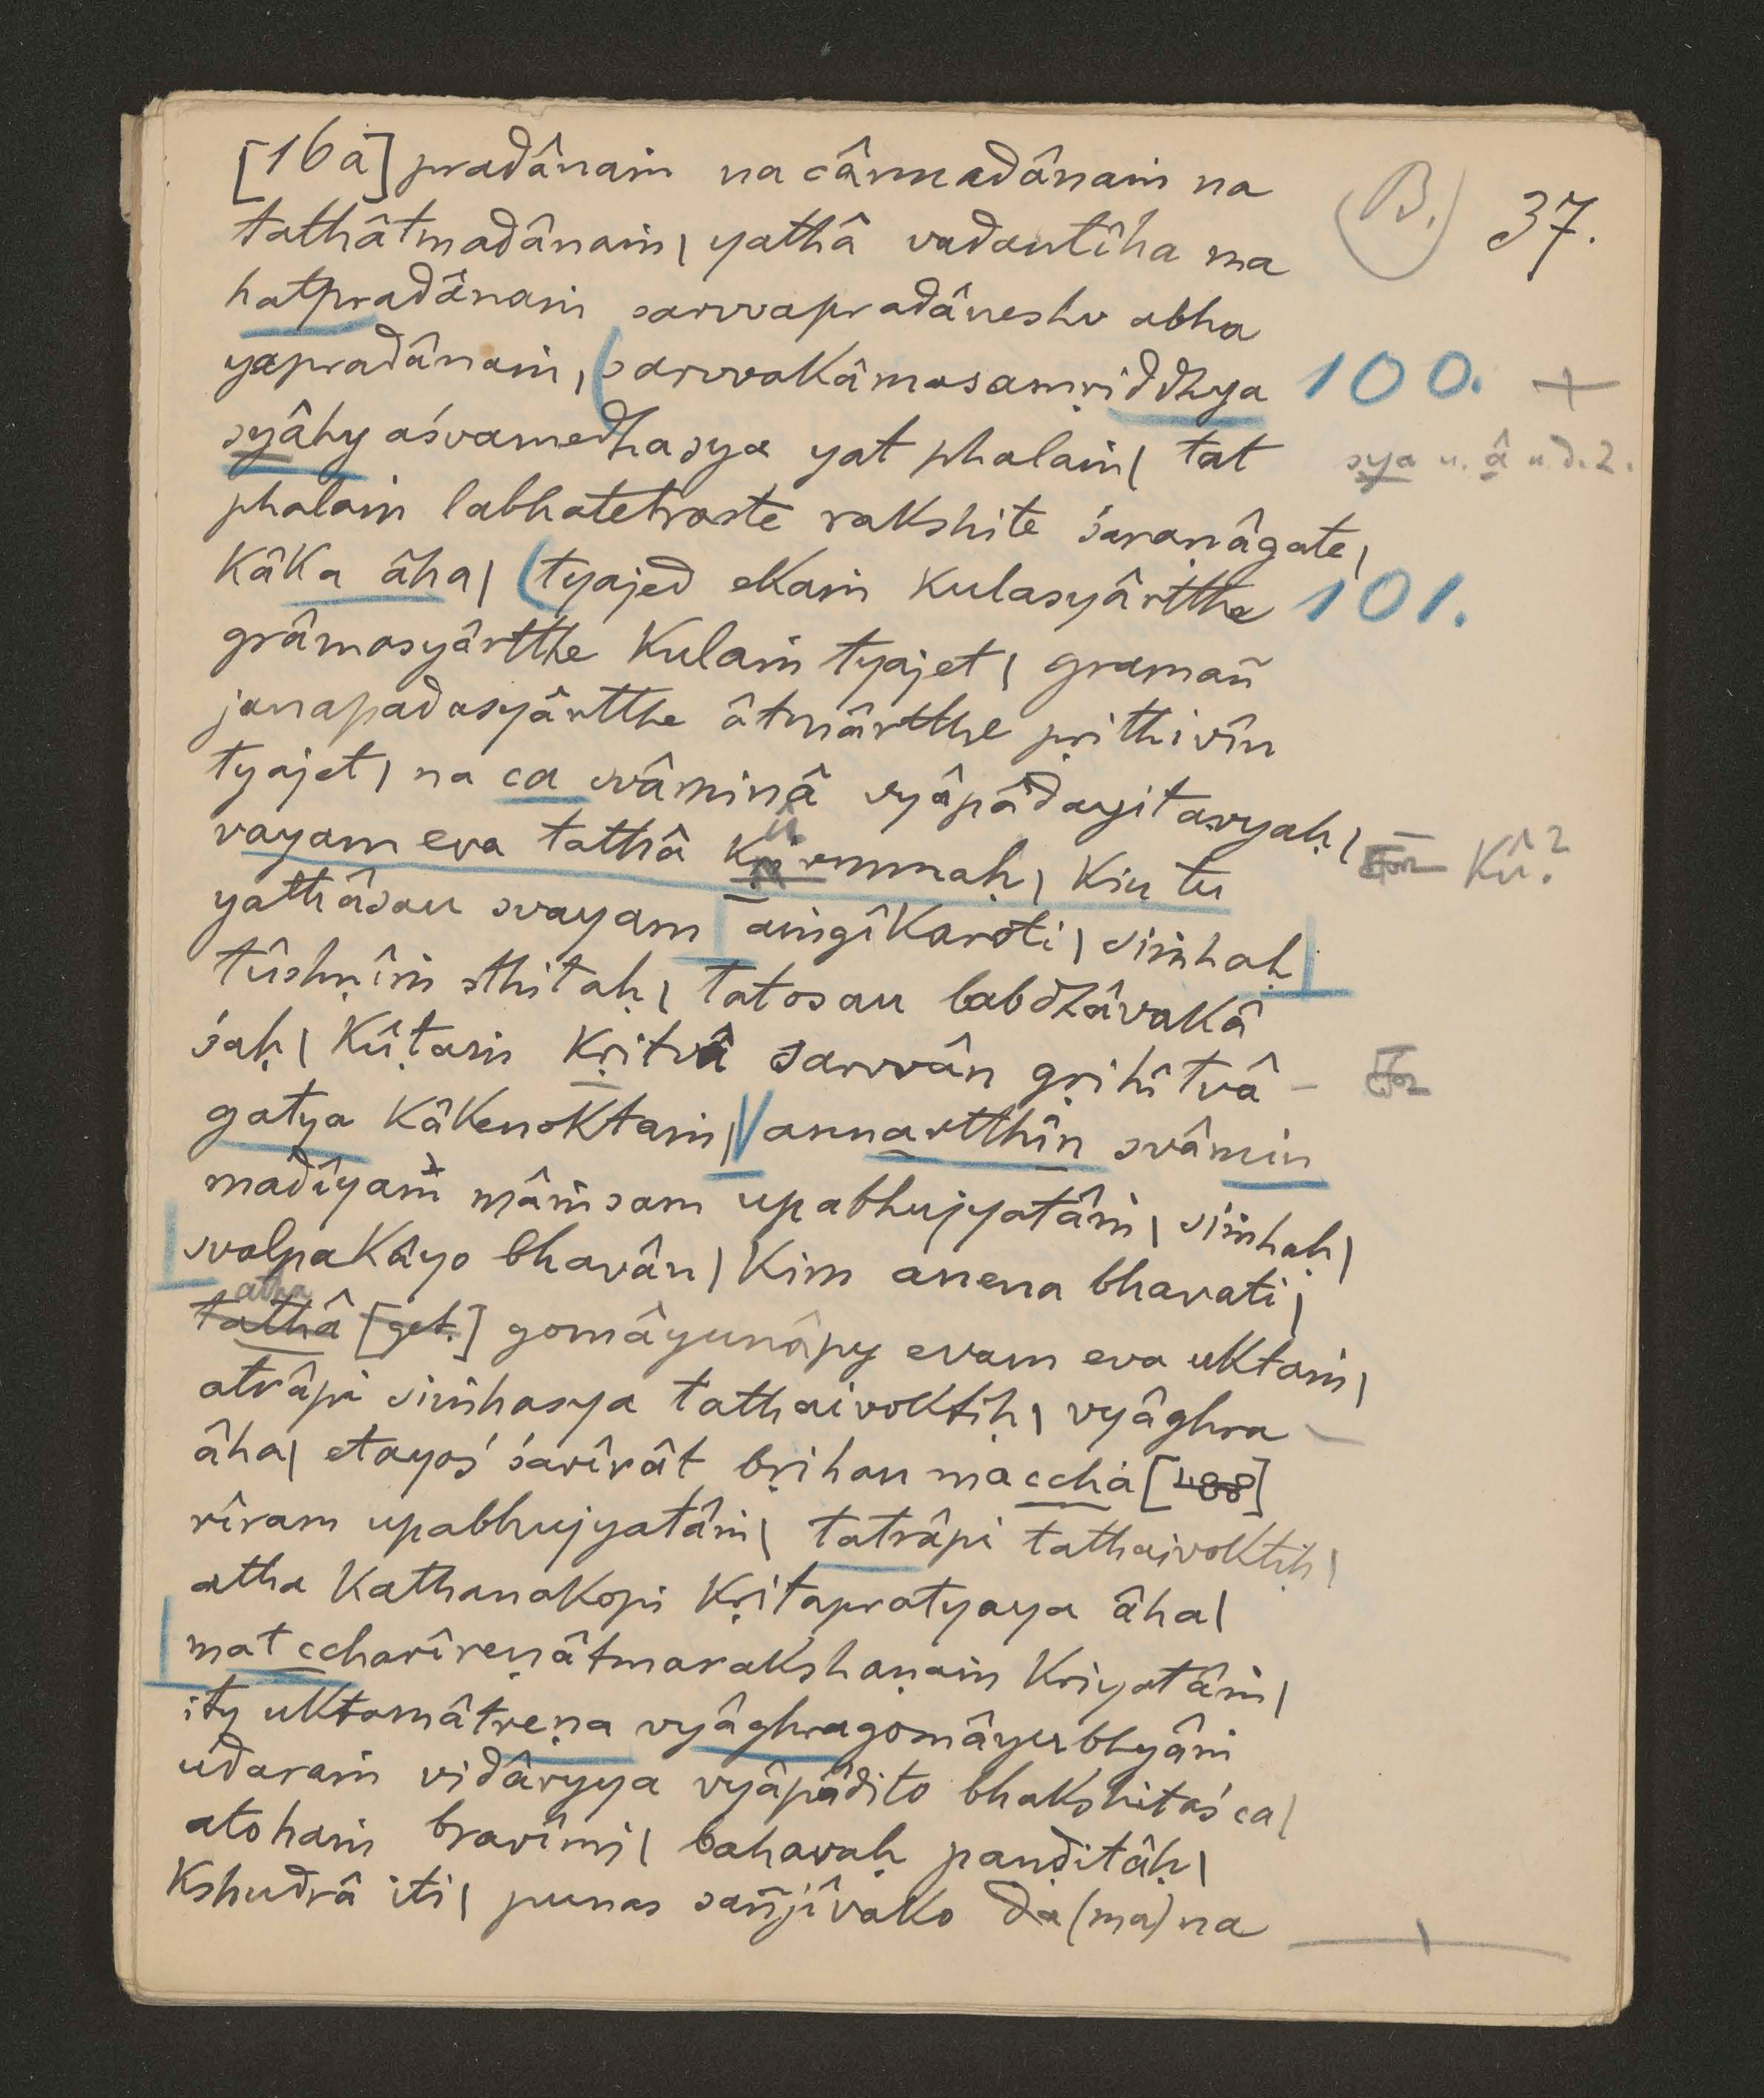 [16a] pradânaṁ na cânnadânaṁ na
(B.) 37.
tathâtmadânaṁ| yathâ vadantîha ma
hatpradânaṁ sarvvapradâneshv abha
yapradânaṁ, sarvvakâmasamṛiddhya 100. +
syâhy aśvamedhasya yat phalaṁ| tat sya u. â u.d.Z.
phalaṁ labhatetraste rakshite śaraṇâgate|
Kâka âha| tyajed ekaṁ kulasyârtthe 101.
grâmasyârtthe kulaṁ tyajet| gramañ
janapadasyârtthe âtmârtthe pṛithivîn
tyajet| na ca svâminâ vyâpâdayitavyaḥ|
vayam eva tathâ kurmmaḥ| kiṇ tu Kû?
yathâsau svayam aṁgîkaroti| siṁhaḥ
tûshṇîṁ sthitaḥ| tatosau labdhâvakâ
śaḥ| kûṭaṁ kṛitvâ sarvvân gṛihîtvâ –
gatya kâkenoktaṁ| annartthîn svâmin
madîyaṁ mâṁsam upabhujyatâṁ| siṁhaḥ|
svalpakâyo bhavân| kim anena bhavati|
atha
tathâ [get.] gomâyunâpy evam eva uktaṁ|
atrâpi siṁhasya tathaivoktiḥ| vyâghra –
âha| etayoś śarîrât bṛihan maccha [488]
rîram upabhujyatâṁ| tatrâpi tathaivoktiḥ|
atha kathanakopi kṛitapratyaya âha|
mat ccharîreṇâtmarakshaṇaṁ kriyatâṁ|
ity uktamâtreṇa vyâghragomâyubhyâṁ
udaraṁ vidâryya vyâpâdito bhakshitaś ca|
atohaṁ bravîmi| bahavaḥ paṇḍitâḥ|
kshudrâ iti| punas sañjîvako da(ma)na